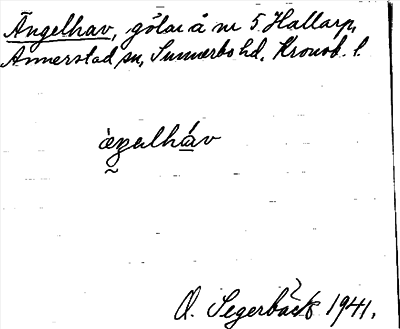 Ängelhav, gölar å nr 5 Hallarp,
Annerstad sn, Sunnerbo hd, Kronob. l.
O. Segerbäck 1941.